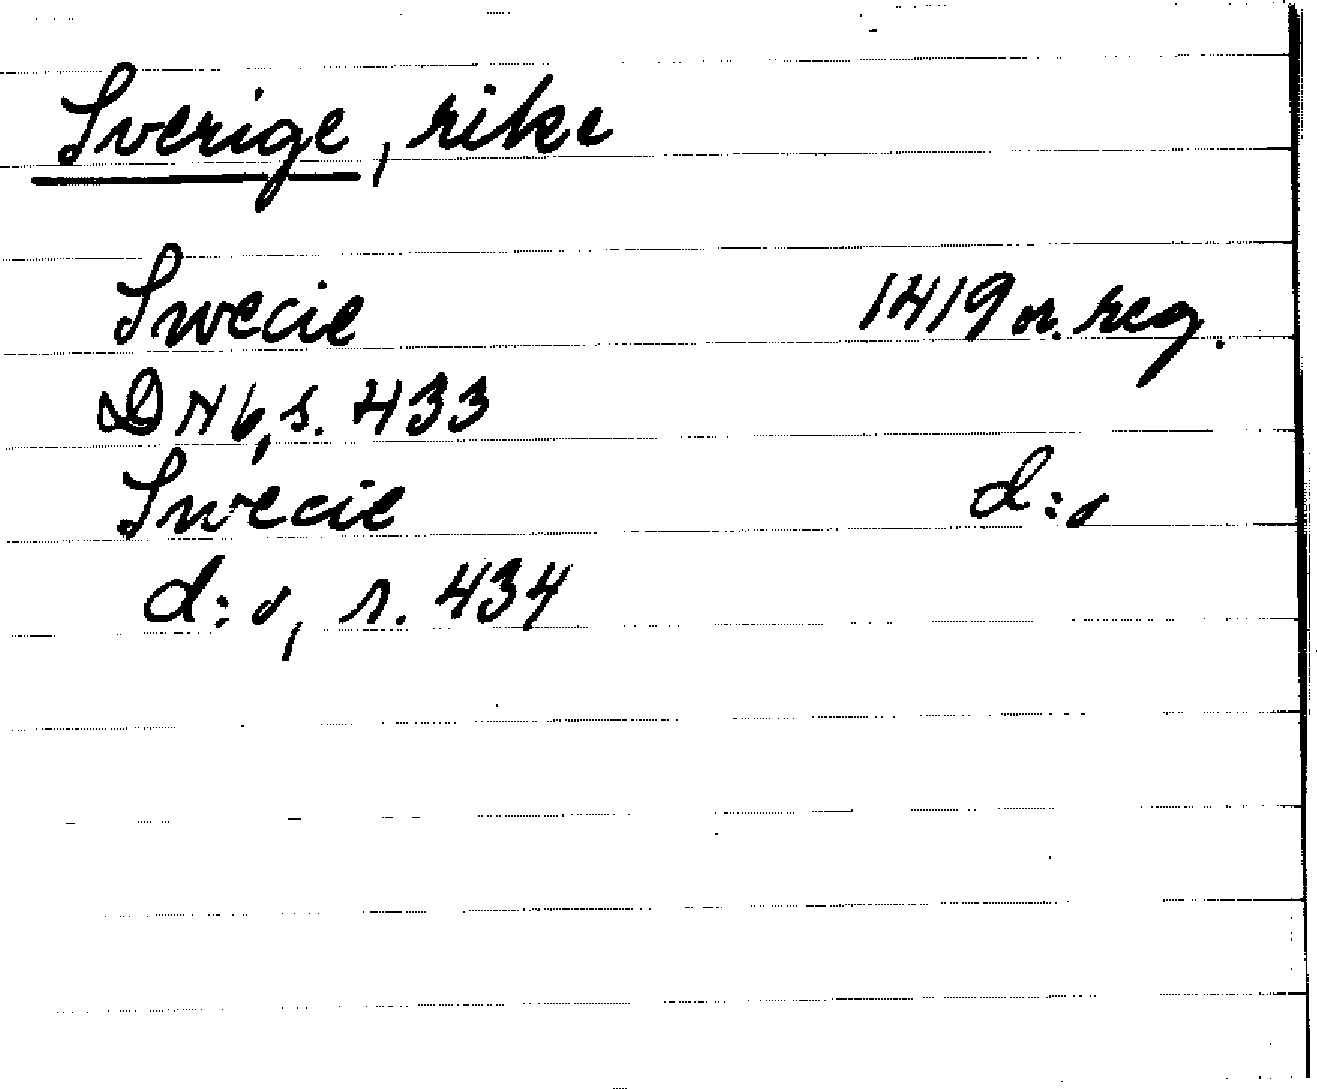 Sverige, rike
Swecie 1419 or. reg.
DN 6, s. 433
Swecie d:o
d:o, s. 434